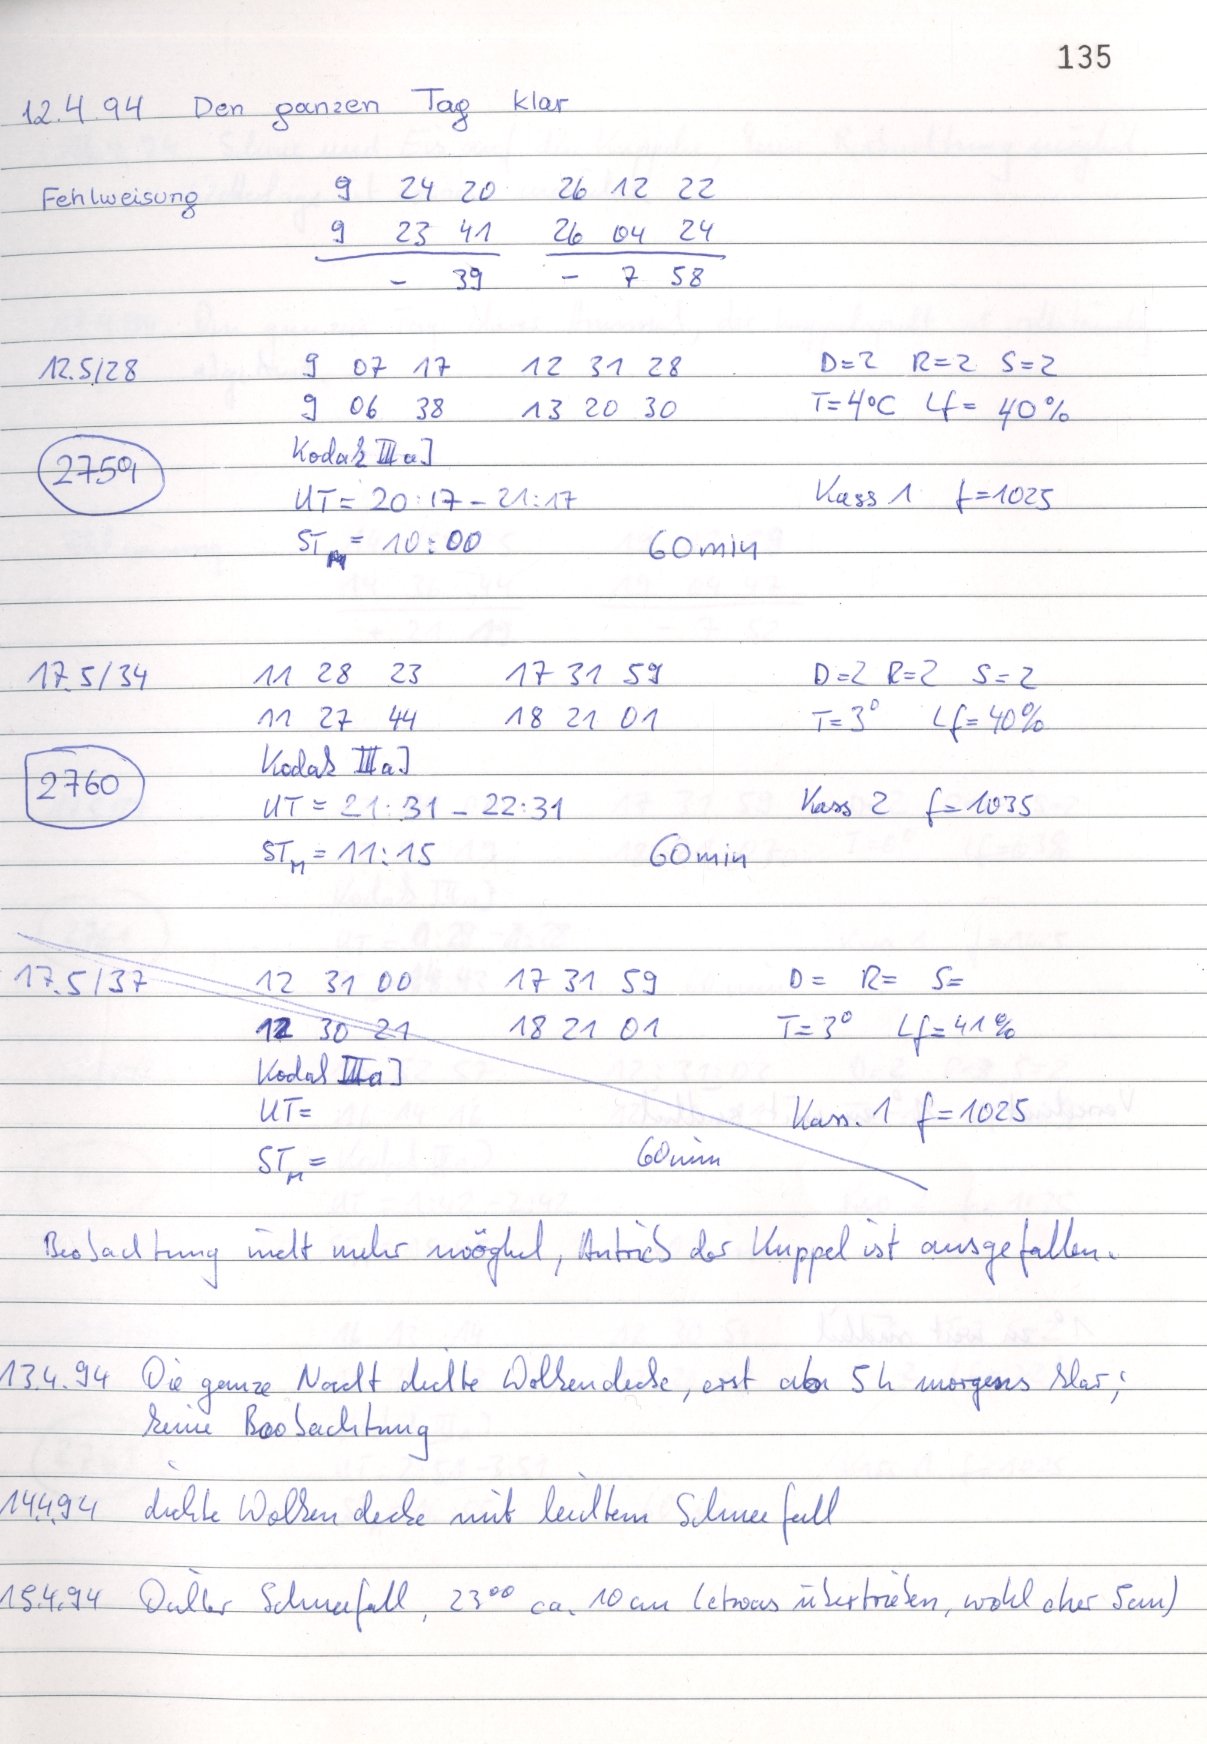 135
12.4.94 Den ganzen Tag klar
Fehlweisung 9 24 20 26 12 22
9 23 41 26 04 24
- 39 - 7 58
12.5/28 9 07 17 12 31 28 D=2 R=2 S=2
9 06 38 13 20 30 T=4°C Lf= 40%
2759 Kodak IIIaJ
UT= 20:17 - 21:17 Kass 1 f=1025
STM = 10:00 60min
17.5/34 11 28 23 17 31 59 D=2 R=2 S=2
11 27 44 18 21 01 T=3° Lf=40%
2760 Kodak IIIaJ
UT = 21:31 - 22:31 Kass 2 f=1035
STM = 11:15 60min
17.5/37 12 31 00 17 31 59 D= R= S=
12 30 21 18 21 01 T=3° Lf=41%
Kodak IIIaJ
UT= Kass. 1 f=1025
STM = 60min
Beobachtung nicht mehr möglich, Antrieb der Kuppel ist ausgefallen.
13.4.94 Die ganze Nacht dichte Wolkendecke, erst ab 5h morgens klar;
keine Beobachtung
14.4.94 dichte Wolkendecke mit leichtem Schneefall
15.4.94 Dichter Schneefall, 23⁰⁰ ca. 10cm (etwas übertrieben, wohl eher 5cm)